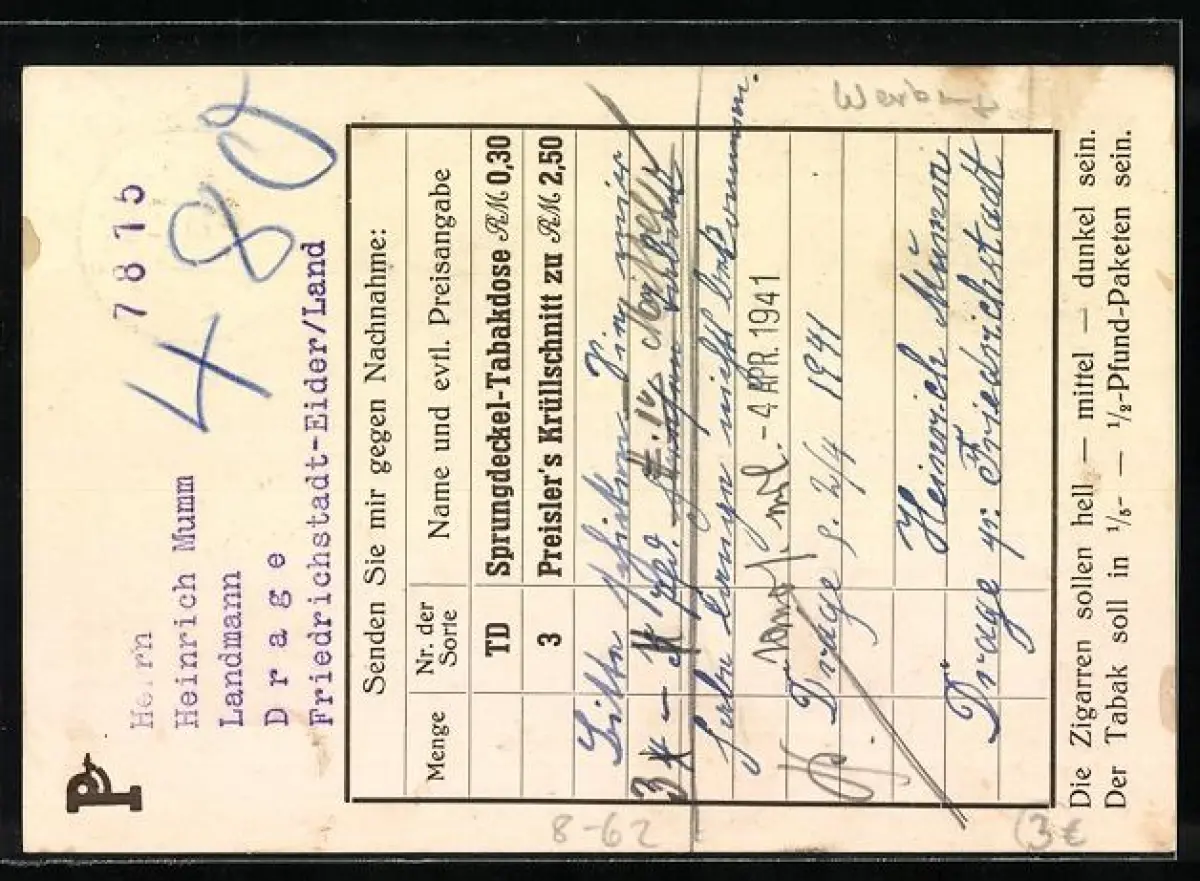 P
Herrn
Heinrich Mumm
Landmann
D r a g e
Friedrichstadt-Eider/Land
7 8 1 5
4 80
Senden Sie mir gegen Nachnahme:
Menge
Nr. der Sorte
Name und evtl. Preisangabe
TD Sprungdeckel-Tabakdose RM 0,30
3 Preisler's Krüllschnitt zu RM 2,50
Bitte schicken Sie mir
3
nicht bekommen.
- 4 APR. 1941
Drage d. 2/4 1941
Heinrich Mumm
Drage gr. Friedrichstadt
Die Zigarren sollen hell — mittel — dunkel sein.
Der Tabak soll in ⅕- — ½-Pfund-Paketen sein.
8-62
3 €